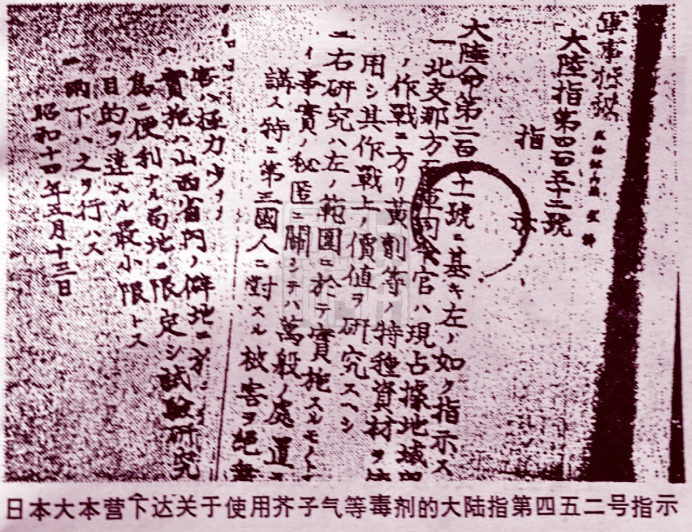 軍事極秘
大陸指第四百五十二號
指示
大陸命第二百十一號ニ基キ左ノ如ク指示ス
一北支那方面軍司令官ハ現占據地域
ノ作戰ニ方リ黃剤等ノ特種資材ヲ
用シ其作戰上ノ價値ヲ研究スヘシ
二右研究ハ左ノ範圍ニ於テ實施スルモ
イ事實ノ秘匿ニ關シテハ萬般ノ處置
講ス特ニ第三國人ニ對スル被害ヲ絕無
害ハ極力少
ハ實施ハ山西省內ノ僻地ニ
爲ニ便利ナル局地ニ限定シ試驗研究
目的ヲ達スル最小限トス
雨下ハ之ヲ行ハス
昭和十四年五月十三日
日本大本营下达关于使用芥子气等毒剂的大陆指第四五二号指示